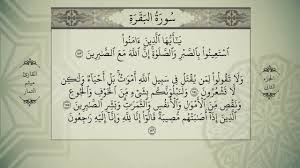 سُورَةُ البَقَرَةِ
يَٰٓأَيُّهَا ٱلَّذِينَ ءَامَنُوا۟
ٱسْتَعِينُوا۟ بِٱلصَّبْرِ وَٱلصَّلَوٰةِ إِنَّ ٱللَّهَ مَعَ ٱلصَّٰبِرِينَ
وَلَا تَقُولُوا۟ لِمَن يُقْتَلُ فِى سَبِيلِ ٱللَّهِ أَمْوَٰتٌۢ بَلْ أَحْيَآءٌ وَلَٰكِن
لَّا تَشْعُرُونَ وَلَنَبْلُوَنَّكُم بِشَىْءٍ مِّنَ ٱلْخَوْفِ وَٱلْجُوعِ
وَنَقْصٍ مِّنَ ٱلْأَمْوَٰلِ وَٱلْأَنفُسِ وَٱلثَّمَرَٰتِ وَبَشِّرِ ٱلصَّٰبِرِينَ
ٱلَّذِينَ إِذَآ أَصَٰبَتْهُم مُّصِيبَةٌ قَالُوٓا۟ إِنَّا لِلَّهِ وَإِنَّآ إِلَيْهِ رَٰجِعُونَ
الجزء
الثاني
القارئ
ميثم
التمار